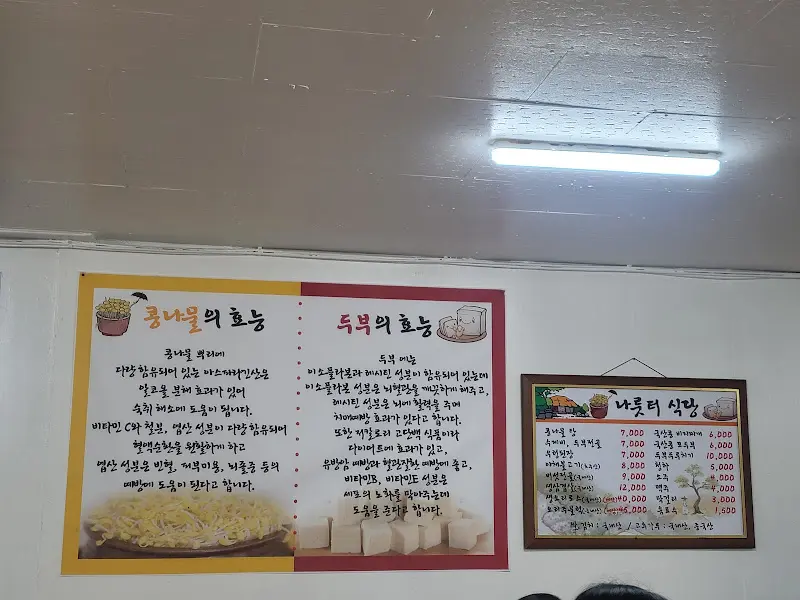 콩나물의 효능
콩나물 뿌리에
다량 함유되어 있는 아스파라긴산은
알코올 분해 효과가 있어
숙취 해소에 도움이 됩니다.
비타민 C와 철분, 엽산 성분이 다량 함유되어
혈액순환을 원활하게 하고
엽산 성분은 빈혈, 피부미용, 뇌졸중 등의
예방에 도움이 된다고 합니다.
두부의 효능
두부에는
이소플라본과 레시틴 성분이 함유되어 있는데
이소플라본 성분은 뇌혈관을 깨끗하게 해주고,
레시틴 성분은 뇌에 활력을 주며
치매예방 효과가 있다고 합니다.
또한 저칼로리 고단백 식품이라
다이어트에 효과가 있고,
유방암 예방과 혈관질환 예방에 좋고,
비타민B, 비타민E 성분은
세포의 노화를 막아주는데
도움을 준다고 합니다.
나룻터 식당
콩나물밥 7,000
수제비, 두부전골 7,000
우렁된장 7,000
야채불고기 8,000
버섯전골(국내산) 9,000
생삼겹살(국내산) 12,000
생오리로스(국내산) 40,000
오리주물럭(국내산) 45,000
국산콩 비지찌개 6,000
국산콩 모두부 6,000
두부두루치기 10,000
청하 5,000
소주 4,000
맥주 4,000
막걸리 3,000
음료수 1,500
쌀, 김치 : 국내산 / 고춧가루 : 국내산, 중국산